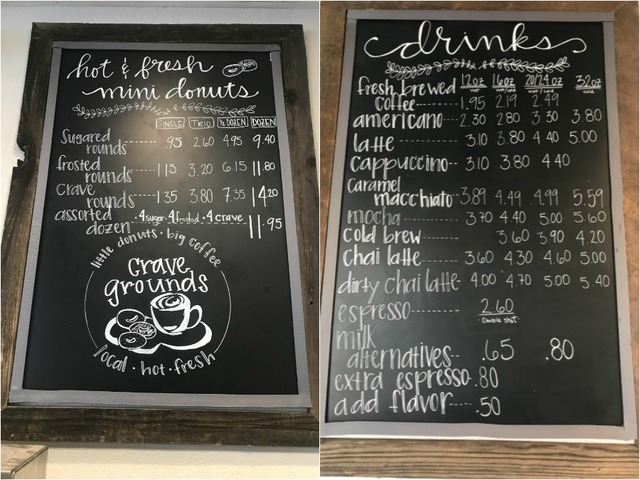 hot & fresh
mini donuts
SINGLE TRIO ½ DOZEN DOZEN
Sugared
rounds ---- .95 2.60 4.95 9.40
frosted
rounds ---- 1.15 3.20 6.15 11.80
Crave
rounds ---- 1.35 3.80 7.35 14.20
assorted
dozen -- • 4 sugar • 4 frosted • 4 crave 11.95
little donuts • big coffee
Crave
grounds
local • hot • fresh
drinks
12oz 16oz 20/24oz 32oz
fresh brewed
coffee ---- 1.95 2.19 2.49
americano ---- 2.30 2.80 3.30 3.80
latte ---- 3.10 3.80 4.40 5.00
cappuccino -- 3.10 3.80 4.40
caramel
macchiato -- 3.89 4.49 4.99 5.59
mocha ---- 3.70 4.40 5.00 5.60
cold brew ---- 3.60 3.90 4.20
chai latte ---- 3.60 4.30 4.60 5.00
dirty chai latte -- 4.00 4.70 5.00 5.40
espresso ---- 2.60
Double Shot
milk
alternatives -- .65 .80
extra espresso - .80
add flavor ---- .50